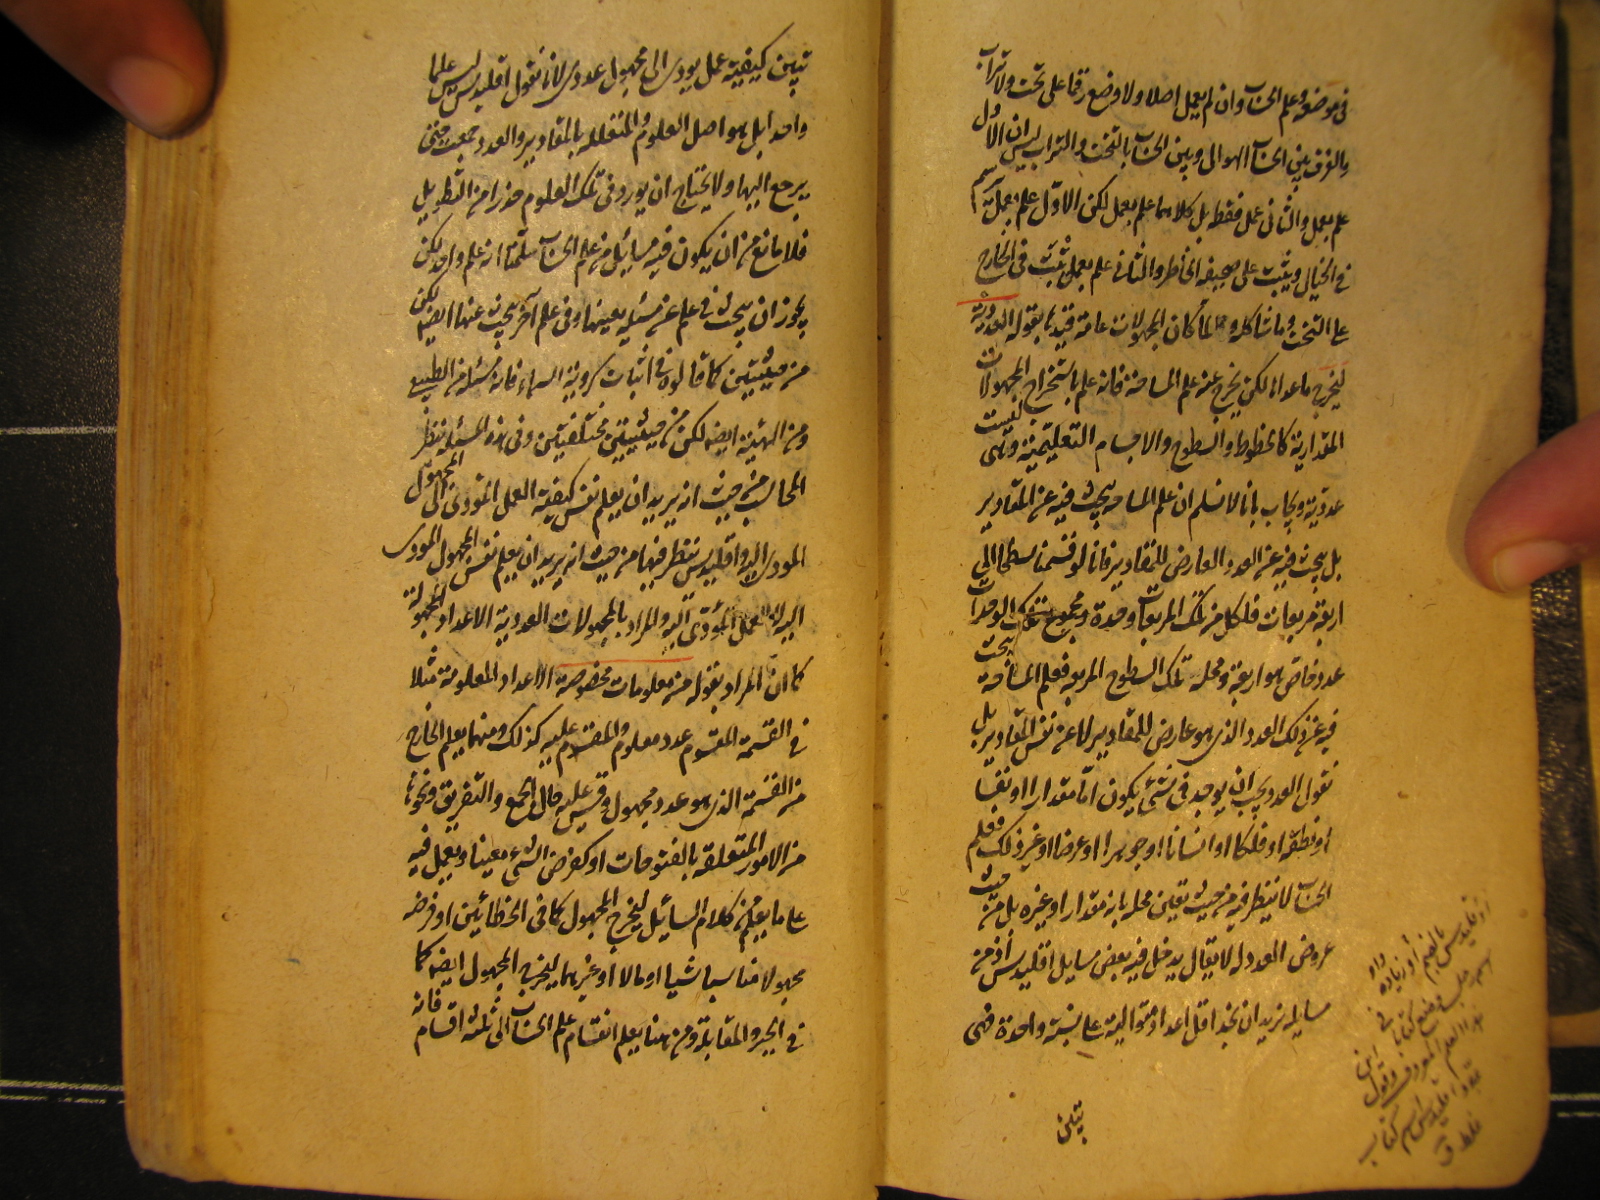 في موضوع علم الحساب وان لم يعمل اصلا ولا وضع رقما على تخت ولا تراب
والفرق بين الحساب الهوائي وبين الحساب بالتخت والتراب ليس ان الاول
علم بعمل والثاني عمل فقط بل كلاهما علم بعمل لكن الاول علم بعمل يرسم
في الخيال ويثبت على صحيفة الخاطر والثاني علم بعمل يثبت في الخارج
على التخت وما شاكله ولما كان المجهولات عامة قيدها بقوله العددية
ليخرج ماعداها لكن يخرج عنه علم المساحة فانه علم باستخراج المجهولات
المقدارية كالخطوط والسطوح والاجسام التعليمية وهي ليست
عددية ويجاب بانا لا نسلم ان علم المساحة يبحث فيه عن المقادير
بل يبحث فيه عن العدد العارض للمقادير فانا لو قسمنا سطحا الى
اربعة مربعات فلكل من تلك المربعات وحدة ومجموع تلك الوحدات
عدد خاص هو اربعة ومحله تلك السطوح المربعة فعلم المساحة يبحث
فيه عن ذلك العدد الذي هو عارض للمقادير لا عن نفس المقادير بل
نقول العدد يجب ان يوجد في شيء يكون اما مقدارا او نفسا
او نطقة او فلكا او انسانا او جوهرا او عرضا او غير ذلك فعلم
الحساب لا ينظر فيه من حيث تعين محله بانه مقدار او غيره بل من حيث
عروض العدد له لا يقال يدخل فيه بعض مسايل اقليدس اذ من
مسايله نريد ان نجد اقل اعداد متوالية على نسبة واحدة فهي
تبين
اقليدس بالضم وزيادة واو
اسم رجل وضع كتابا في
هذا العلم المعروف وقول ابن
عباد اقليدس اسم كتاب
غلط ق
تبين كيفية عمل يودى الى مجهول عددى لانا نقول اقليدس ليس علما
واحدا بل هو اصل العلوم المتعلقه بالمقادير والعدد جمعت حتى
يرجع اليها ولا يحتاج ان يورد في تلك العلوم حذرا من التطويل
فلا مانع من ان يكون فيه مسايل من علم الحساب سلمنا انه علم واحد لكن
يجوز ان يبحث في علم عن مسئله بعينها وفي علم آخر يبحث عنها ايضا لكن
من حيثيتين كما قالوه في اثبات كروية السماء فانه مسئلة من الطبيعي
ومن الهيئة ايضا لكن من حيثيتين مختلفتين وفي هذه المسئله نظر
المحاسب من حيث انه يريد ان يعلم نفس كيفية العمل المودى الى المجهول
المودى اليه واقليدس ينظر فيها من حيث انه يريد ان يعلم نفس المجهول المودى
اليه لا العمل المؤدى اليه والمراد بالمجهولات العددية الاعداد المجهولة
كما ان المراد بقوله من معلومات مخصوصة الاعداد المعلومة مثلا
في القسمة المقسوم عدد معلوم والمقسوم عليه كذلك ومنهما يعلم الخارج
من القسمة الذي هو عدد مجهول وقس عليه حال الجمع والتفريق ونحوهما
من الامور المتعلقة بالمفتوحات او كفرض الشيء معينا ويعمل فيه
على ما يعلم من كلام السائل ليخرج المجهول كما في الخطائين او فرضه
مجهولا مناسبا شيا او مالا او غيرهما ليخرج المجهول ايضا كما
في الجبر والمقابلة ومن هنا يعلم انقسام علم الحساب الى ثلثة اقسام فانه